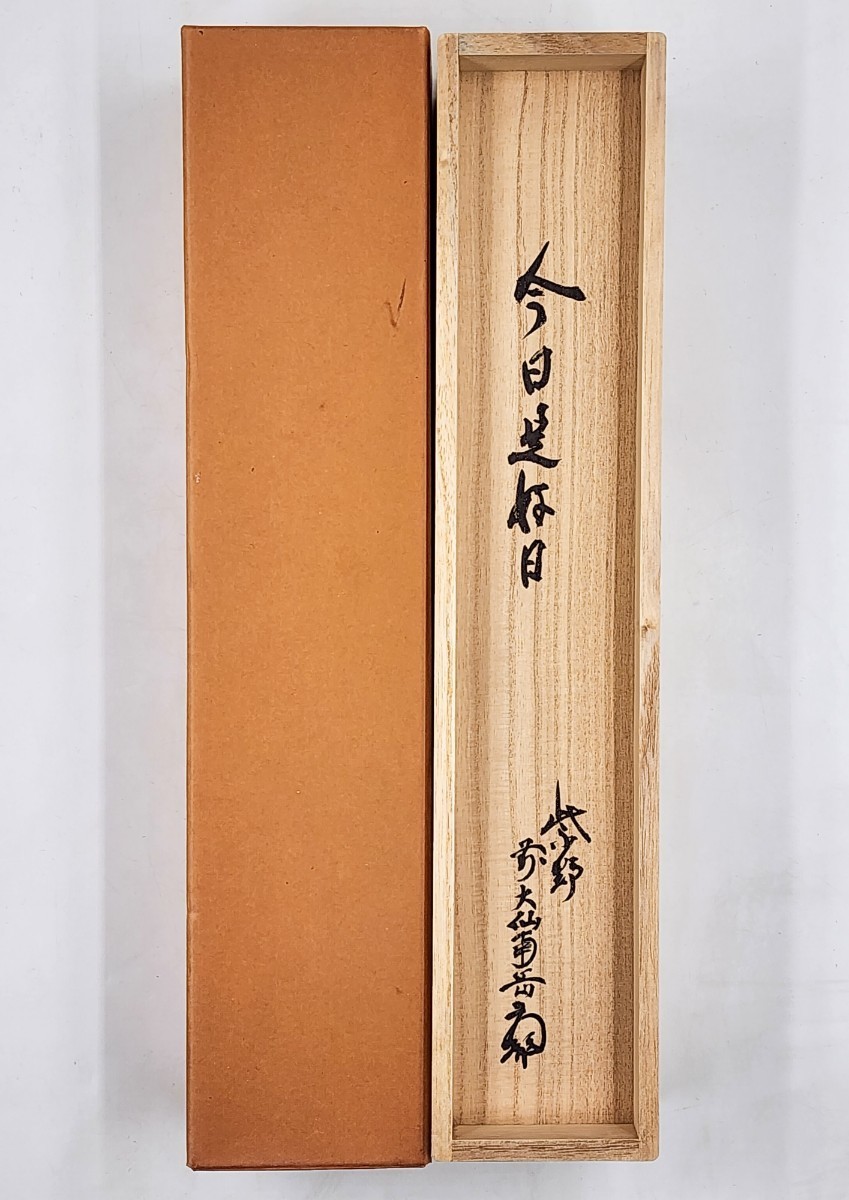 今日是好日
紫野
前大仙南岳